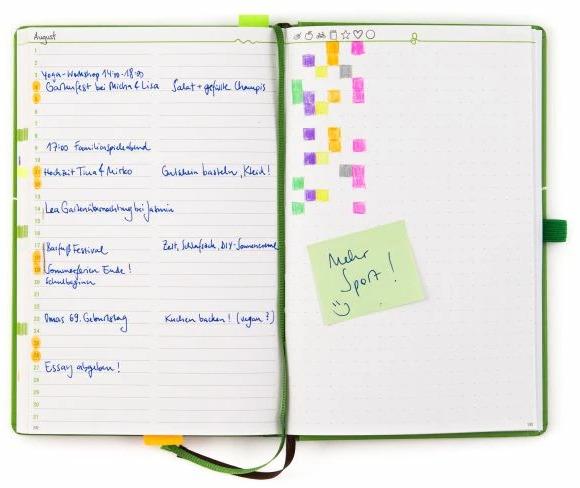 August
Yoga-Workshop 14:00-18:00
Gartenfest bei Micha & Lisa Salat + gefüllte Champis
17:00 Familienspieleabend
Hochzeit Tina & Mirko Gutschein basteln, Kleid!
Lea Gartenübernachtung bei Jasmin
Barfuß Festival Zelt, Schlafsäcke, DIY-Sonnencreme
Sommerferien Ende!
Schulbeginn
Omas 69. Geburtstag Kuchen backen! (vegan?)
Essay abgeben!
Mehr
Sport!